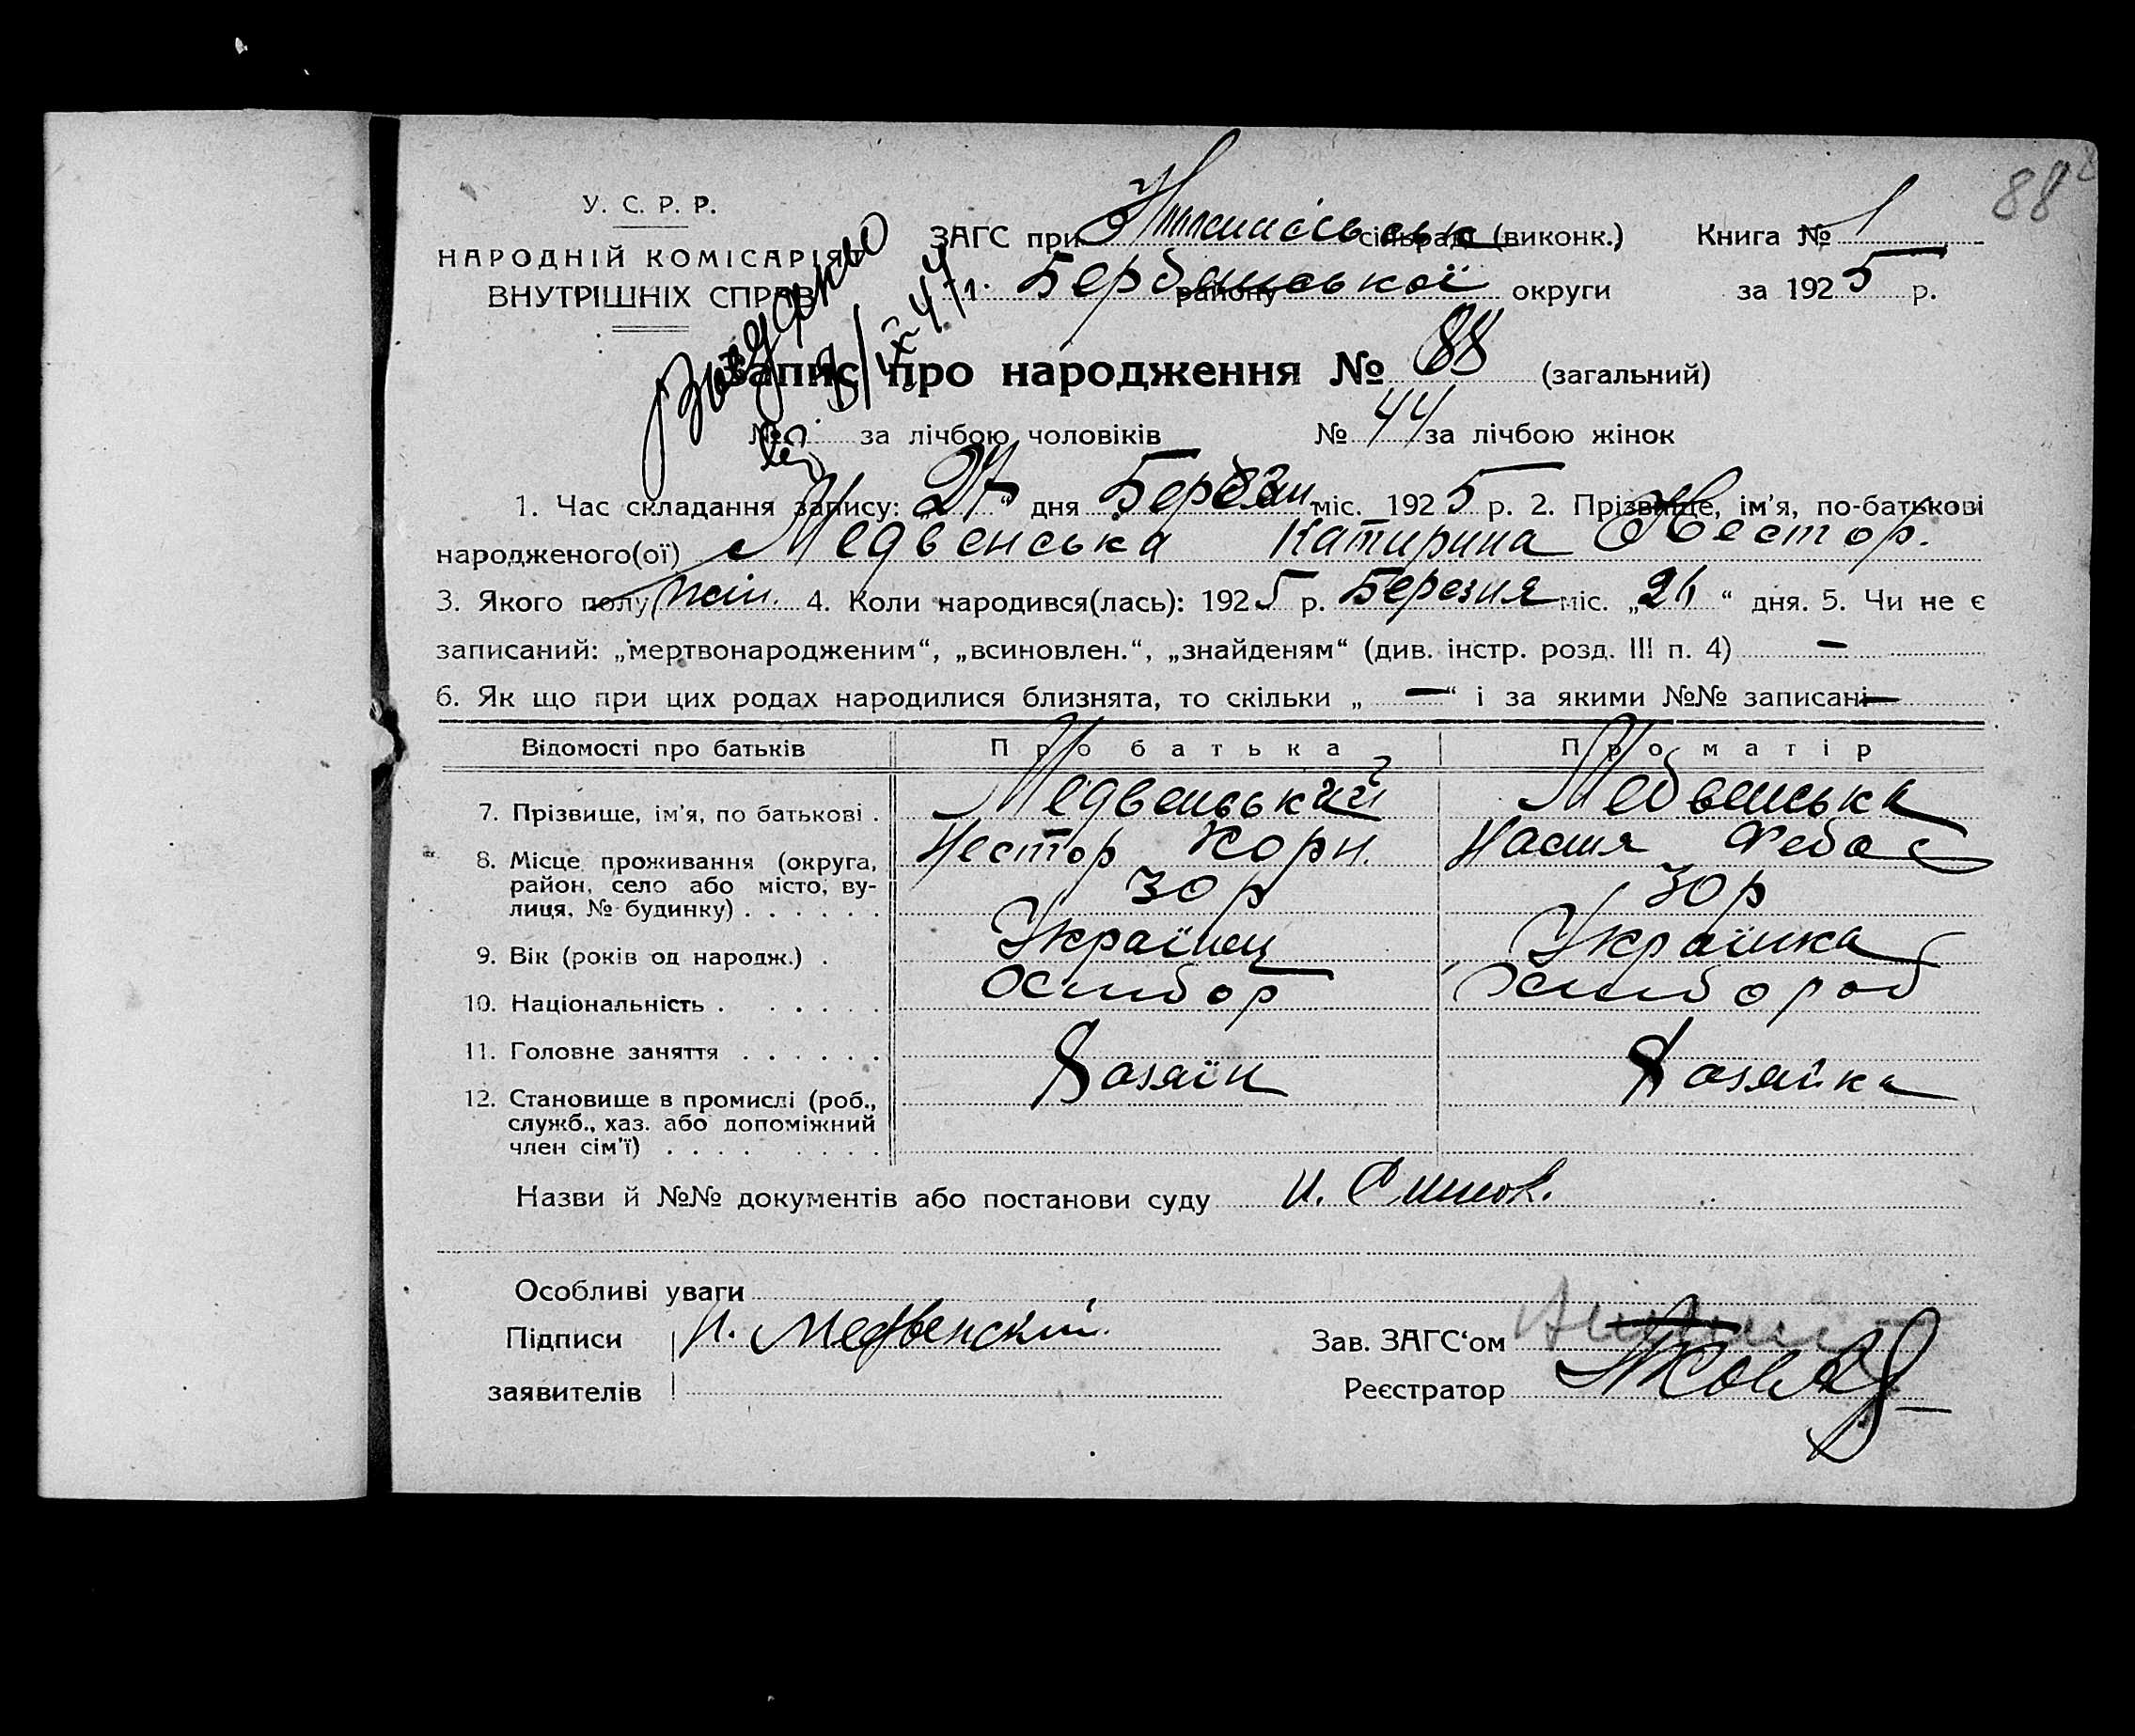 88
У. С. Р. Р.
НАРОДНІЙ КОМІСАРІЯТ
ВНУТРІШНІХ СПРАВ
ЗАГС при сільраді (виконк.) Книга № 1
Бердянської району округи за 1925 р.
Запис про народження № 88 (загальний)
№ за лічбою чоловіків № 44 за лічбою жінок
1. Час складання запису: „27“ дня міс. 1925 р. 2. Прізвище, ім'я, по-батькові
народженого(ої) Медвенська Катирина Нестор.
3. Якого полу жін. 4. Коли народився(лась): 1925 р. Березня міс. „21“ дня. 5. Чи не є
записаний: „мертвонародженим“, „всиновлен.“, „знайденям“ (див. інстр. розд. III п. 4) —
6. Як що при цих родах народилися близнята, то скільки „—“ і за якими №№ записані —
Відомості про батьків Про батька Про матір
7. Прізвище, ім'я, по батькові . Медвенський Медвенська
Нестор Корн. Настя
8. Місце проживання (округа,
район, село або місто, ву-
лиця, № будинку) . . . . . . 30 р 30 р
9. Вік (років од народж.) . Українец Українка
10. Національність . . . . . . Хлибор Хлибороб
11. Головне заняття . . . . . . Хазяїн Хазяйка
12. Становище в промислі (роб.,
служб., хаз. або допоміжний
член сім'ї) . . . . . . . .
Назви й №№ документів або постанови суду
Особливі уваги
Підписи Н. Медвенскій
заявителів
Зав. ЗАГС'ом
Реєстратор